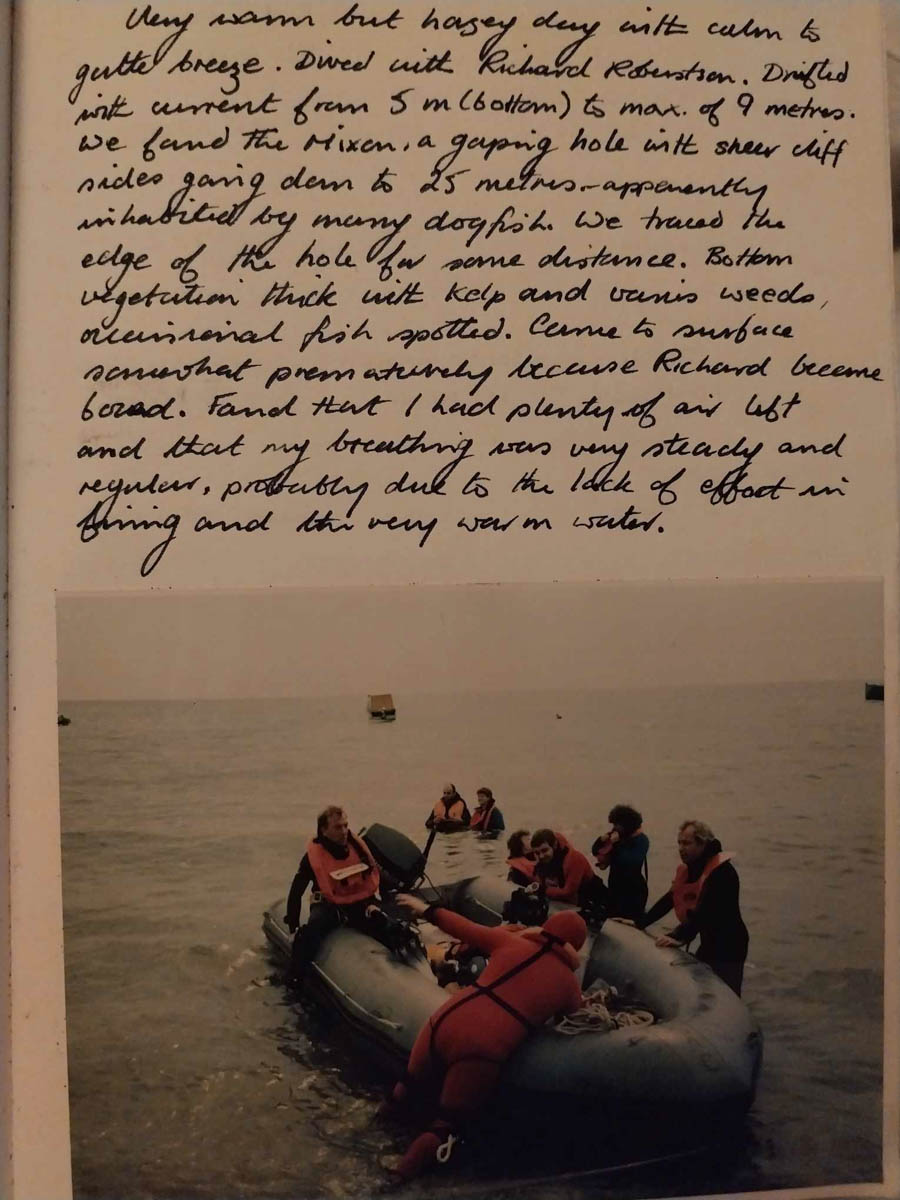 Very warm but hazey day with calm to
gentle breeze. Dived with Richard Robertson. Drifted
with current from 5 m (bottom) to max. of 9 metres.
We found the Mixon, a gaping hole with sheer cliff
sides going down to 25 metres - apparently
inhabited by many dogfish. We traced the
edge of the hole for some distance. Bottom
vegetation thick with kelp and various weeds,
occasional fish spotted. Came to surface
somewhat prematurely because Richard became
bored. Found that I had plenty of air left
and that my breathing was very steady and
regular, probably due to the lack of effort in
finning and the very warm water.